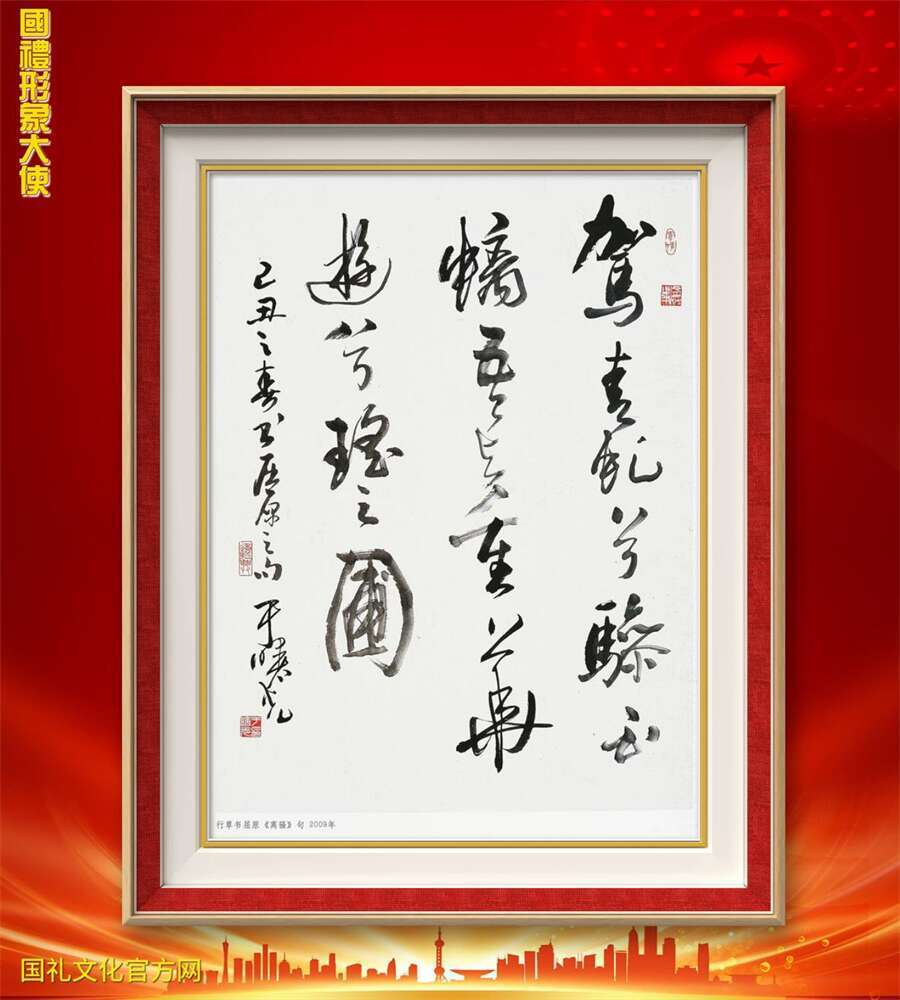 國禮形象大使
駕青虬兮驂白
螭吾与重華
遊兮瑤之圃
己丑之春书屈原之句
行草书屈原《离骚》句 2009年
国礼文化官方网